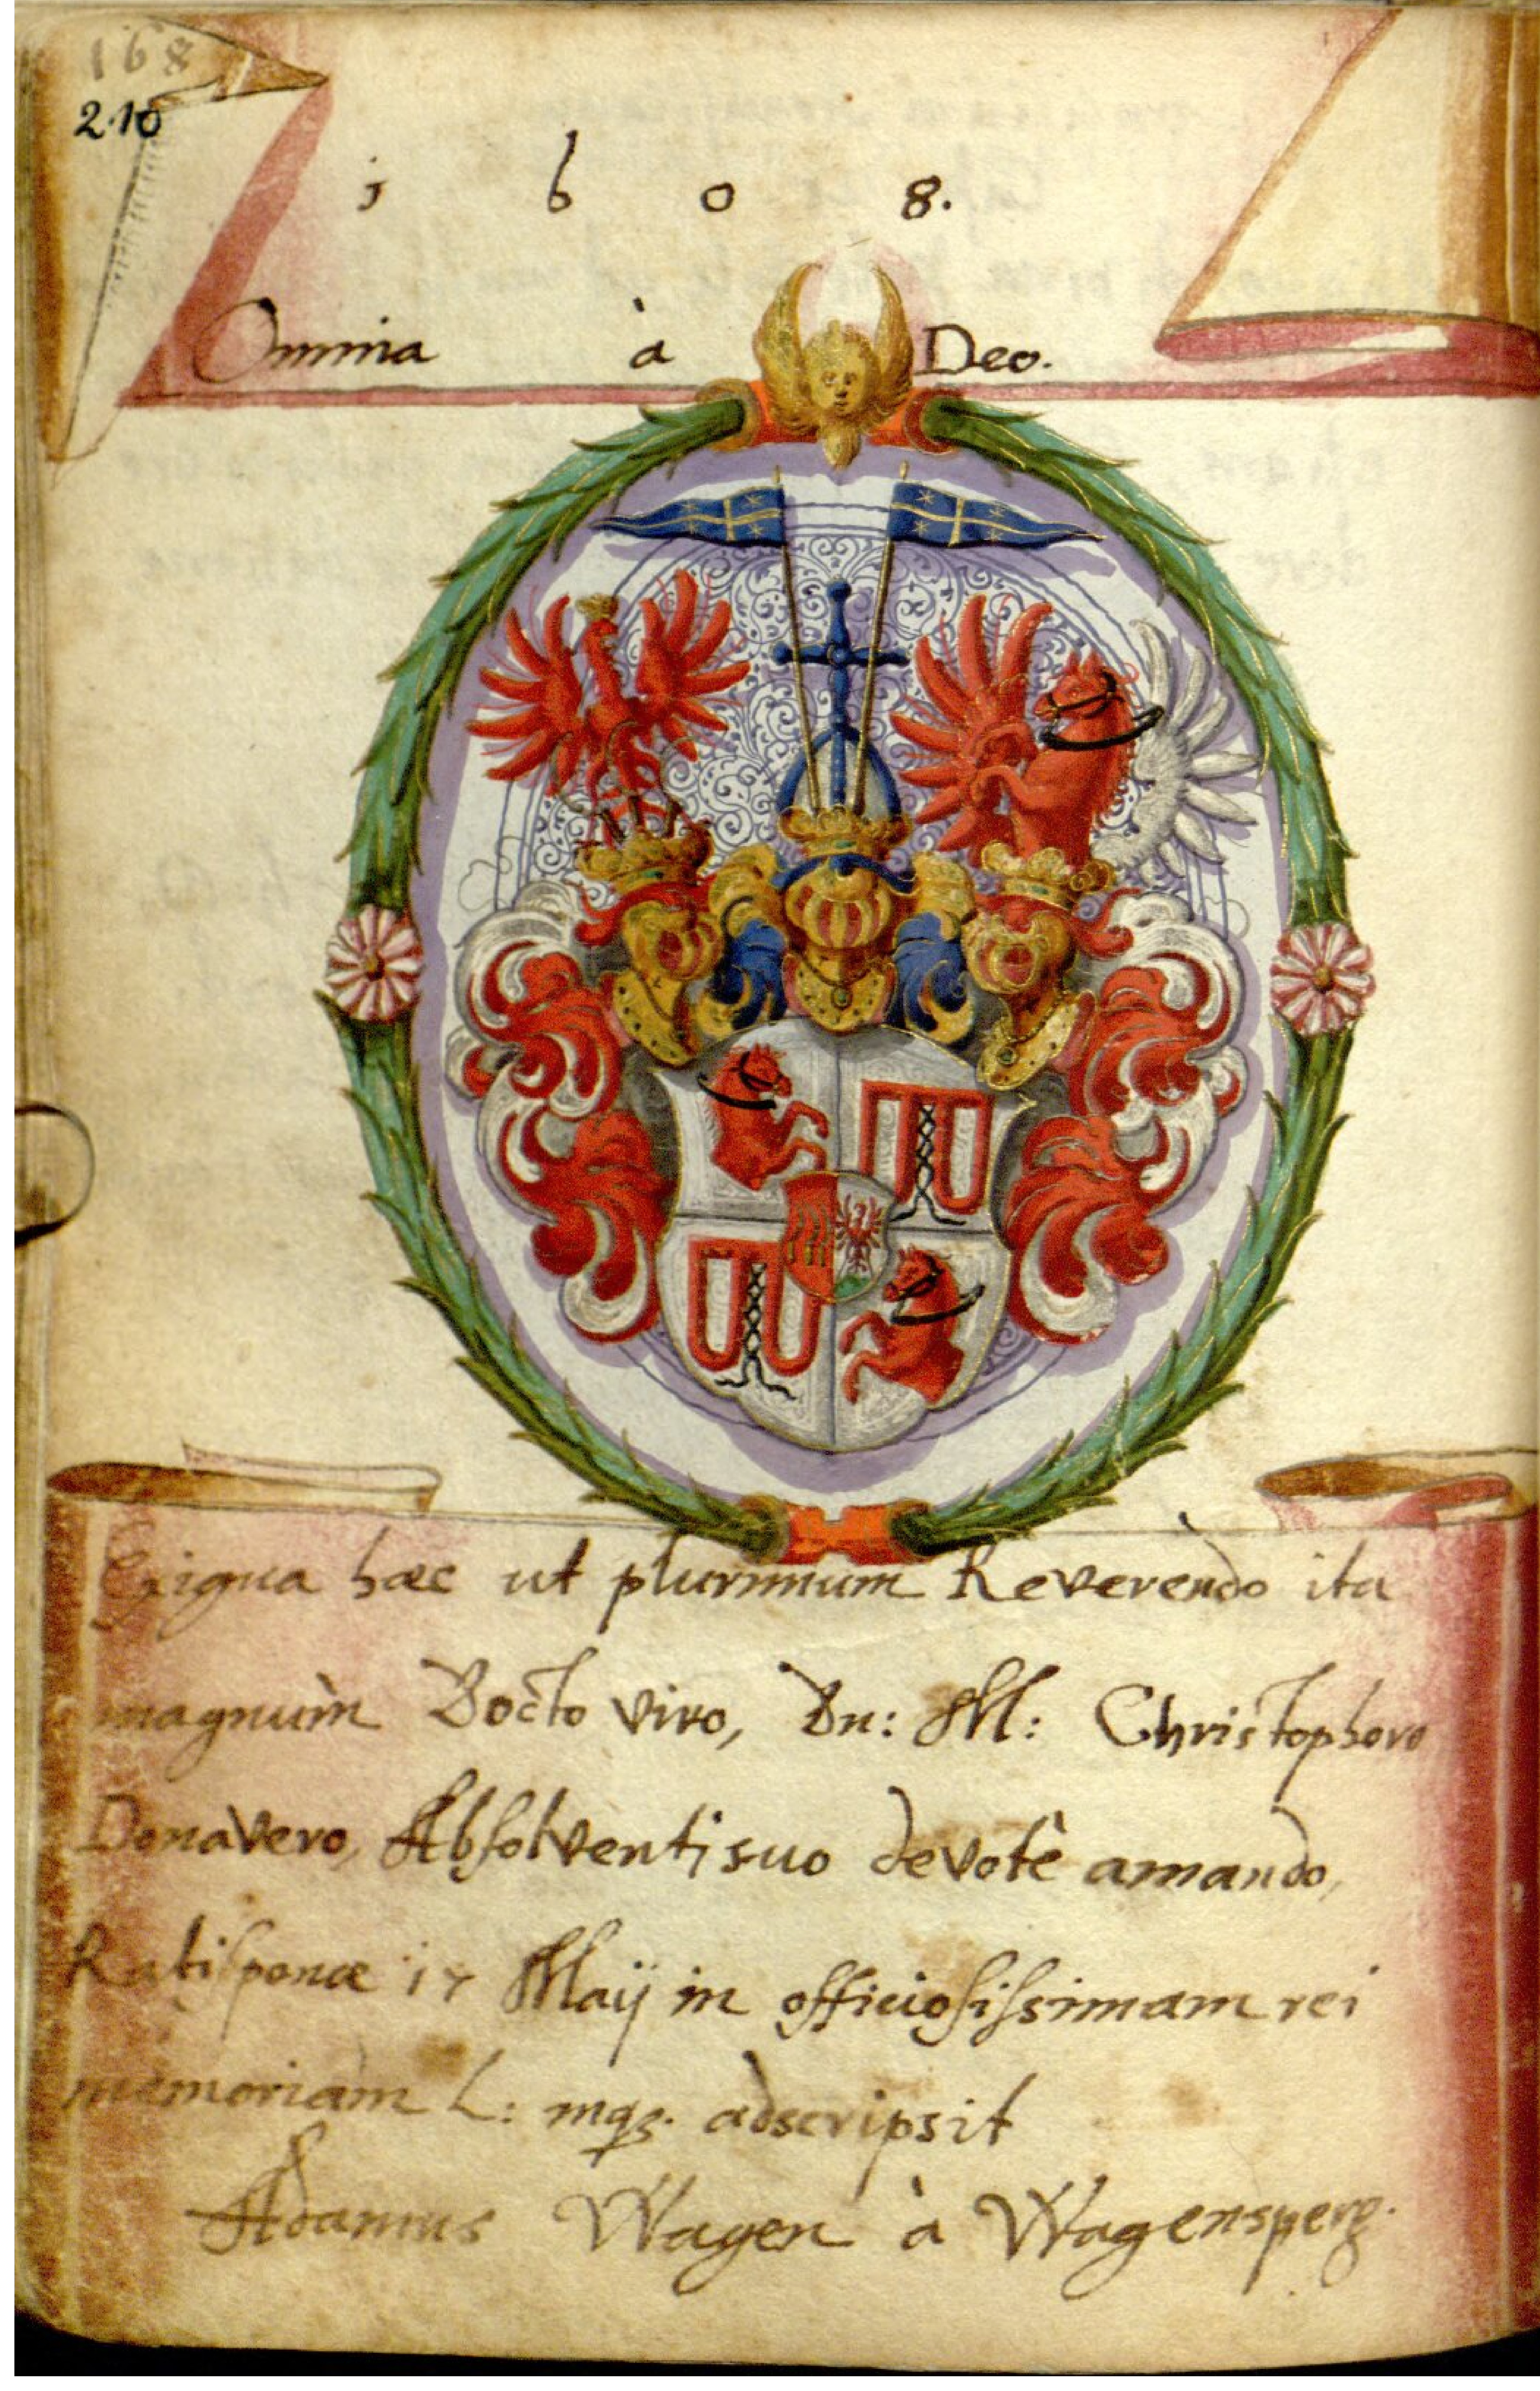 168
210
1 6 0 8.
Omnia à Deo.
Exigua hæc ut plurimum Reverendo ita
magnùm Docto viro, Dn: M: Christophoro
Donavero, Absolventi suo devotê amando,
Ratisponæ 17 Maij in officiosissimam rei
memoriam L: mq3. adscripsit
Adamus Wagen à Wagensperg.